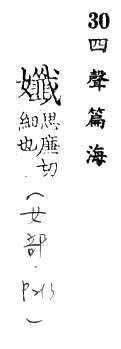 30四聲篇海
孅思廉切
細也.(女部.P213)